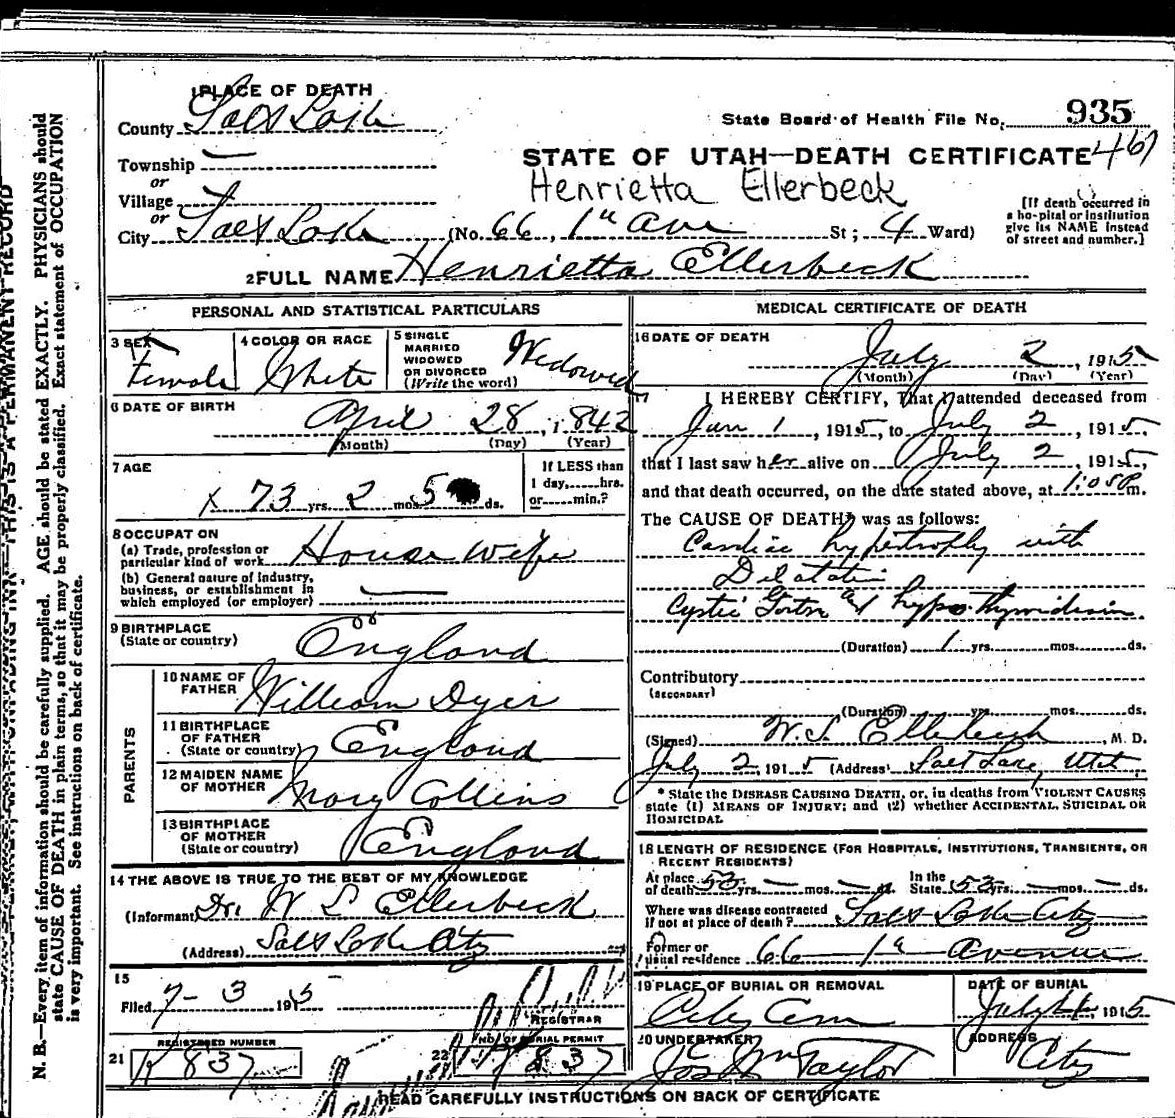 1 PLACE OF DEATH
County Salt Lake
State Board of Health File No. 935
Township —
STATE OF UTAH—DEATH CERTIFICATE 461
or
Henrietta Ellerbeck
Village
or
City Salt Lake (No. 66, 1st Ave St; 4 Ward)
[If death occurred in
a hospital or institution
give its NAME instead
of street and number.]
2 FULL NAME Henrietta Ellerbeck
PERSONAL AND STATISTICAL PARTICULARS
3 SEX
Female
4 COLOR OR RACE
White
5 SINGLE
MARRIED
WIDOWED
OR DIVORCED
(Write the word)
Widowed
6 DATE OF BIRTH
April 28, 1842
(Month) (Day) (Year)
7 AGE
73 yrs. 2 mos. 5 ds.
If LESS than
1 day,......hrs.
or......min.?
8 OCCUPATION
(a) Trade, profession or
particular kind of work House Wife
(b) General nature of industry,
business, or establishment in
which employed (or employer) —
9 BIRTHPLACE
(State or country) England
PARENTS
10 NAME OF
FATHER William Dyer
11 BIRTHPLACE
OF FATHER
(State or country) England
12 MAIDEN NAME
OF MOTHER Mary Collins
13 BIRTHPLACE
OF MOTHER
(State or country) England
14 THE ABOVE IS TRUE TO THE BEST OF MY KNOWLEDGE
(Informant) Dr. W S Ellerbeck
(Address) Salt Lake City
15
Filed 7-3 1915
REGISTRAR
REGISTERED NUMBER
21 K 837
NO. OF BURIAL PERMIT
22 837
MEDICAL CERTIFICATE OF DEATH
16 DATE OF DEATH
July 2, 1915
(Month) (Day) (Year)
17 I HEREBY CERTIFY, That I attended deceased from
Jan 1, 1915, to July 2, 1915,
that I last saw her alive on July 2, 1915,
and that death occurred, on the date stated above, at 1:05 P m.
The CAUSE OF DEATH* was as follows:
Cardiac hypertrophy with
Dilatation
Cystic Goitre and hypothyroidism
(Duration) 1 yrs. mos. ds.
Contributory
(SECONDARY)
(Duration) yrs. mos. ds.
(Signed) W. S. Ellerbeck, M. D.
July 2, 1915 (Address) Salt Lake, Utah
* State the DISEASE CAUSING DEATH, or, in deaths from VIOLENT CAUSES
state (1) MEANS OF INJURY; and (2) whether ACCIDENTAL, SUICIDAL OR
HOMICIDAL
18 LENGTH OF RESIDENCE (FOR HOSPITALS, INSTITUTIONS, TRANSIENTS, OR
RECENT RESIDENTS)
At place
of death 53 yrs. — mos. — ds.
In the
State 53 yrs. — mos. — ds.
Where was disease contracted
if not at place of death? Salt Lake City
Former or
usual residence 66 1st Avenue
19 PLACE OF BURIAL OR REMOVAL
City Cem
DATE OF BURIAL
July 1915
20 UNDERTAKER
Jos Wm Taylor
ADDRESS
City
READ CAREFULLY INSTRUCTIONS ON BACK OF CERTIFICATE
THIS IS A PERMANENT RECORD
N. B.—Every item of information should be carefully supplied. AGE should be stated EXACTLY. PHYSICIANS should
state CAUSE OF DEATH in plain terms, so that it may be properly classified. Exact statement of OCCUPATION
is very important. See instructions on back of certificate.